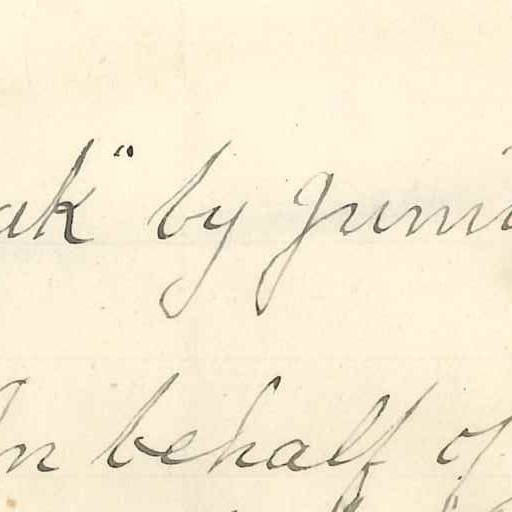 ak" by Juni
In behalf of